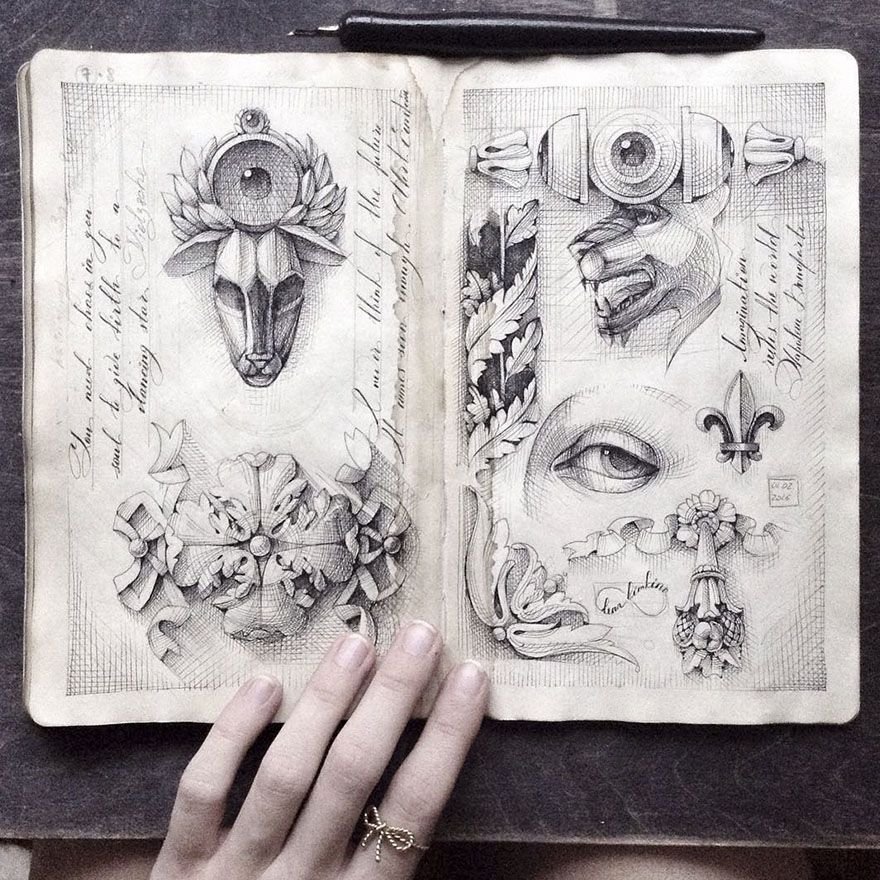 7.8
You need chaos in you
soul to give birth to a
dancing star Nietzsche
I never think of the future
It comes soon enough A. Einstein
Imagination
rules the world
Napoleon Bonaparte
01.02
2016
Lena Limkina